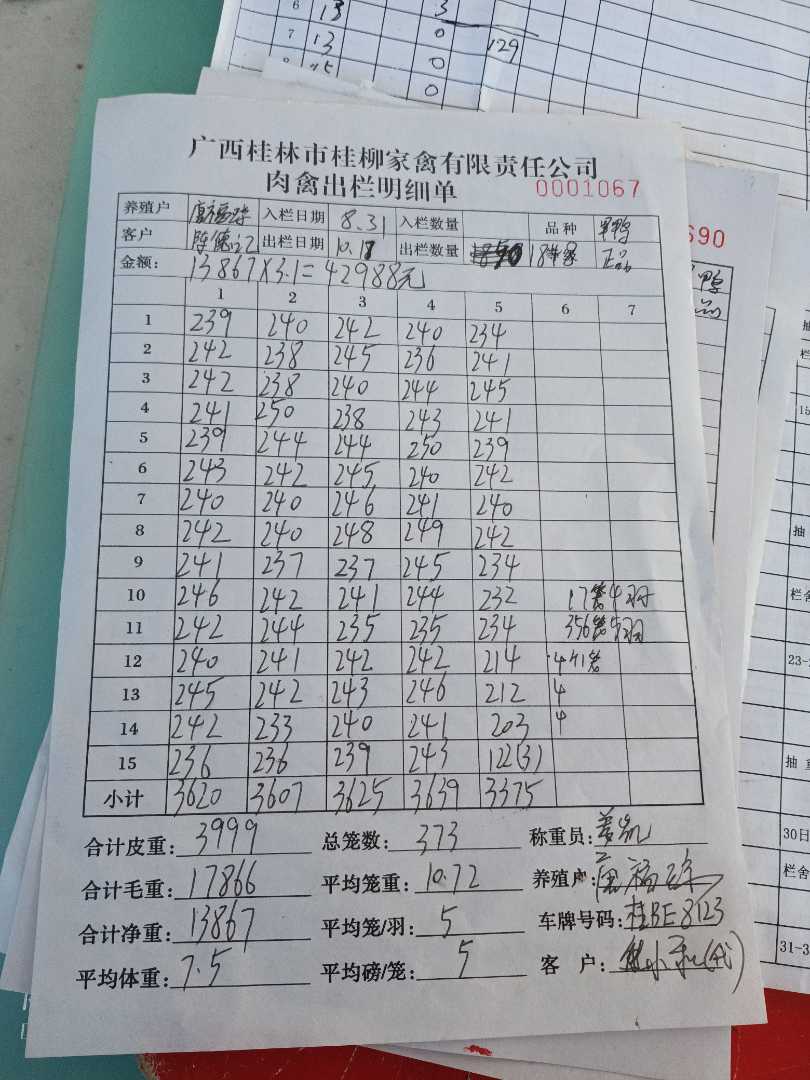 6 13 3
7 13 0 129
0
0
广西桂林市桂柳家禽有限责任公司
肉禽出栏明细单 0001067
养殖户 入栏日期 8.31 入栏数量 品种
客户 出栏日期 10.18 出栏数量 正品
金额: 13867×3.1=42988元
1 2 3 4 5 6 7
1 239 240 242 240 234
2 242 238 245 236 241
3 242 238 240 244 245
4 241 250 238 243 241
5 239 244 244 250 239
6 243 242 245 240 242
7 240 240 246 241 240
8 242 240 248 249 242
9 241 237 237 245 234
10 246 242 241 244 232 17笼4羽
11 242 244 235 235 234 356笼5羽
12 240 241 242 242 214
13 245 242 243 246 212 4
14 242 233 240 241 203 4
15 236 236 239 243 122(3)
小计 3620 3607 3625 3639 3375
合计皮重: 3999 总笼数: 373 称重员:
合计毛重: 17866 平均笼重: 10.72 养殖户:
合计净重: 13867 平均笼/羽: 5 车牌号码: 桂BE8123
平均体重: 7.5 平均磅/笼: 5 客 户:
690
抽
栏
15
抽
栏舍
23-
抽重
30日
栏舍
31-3